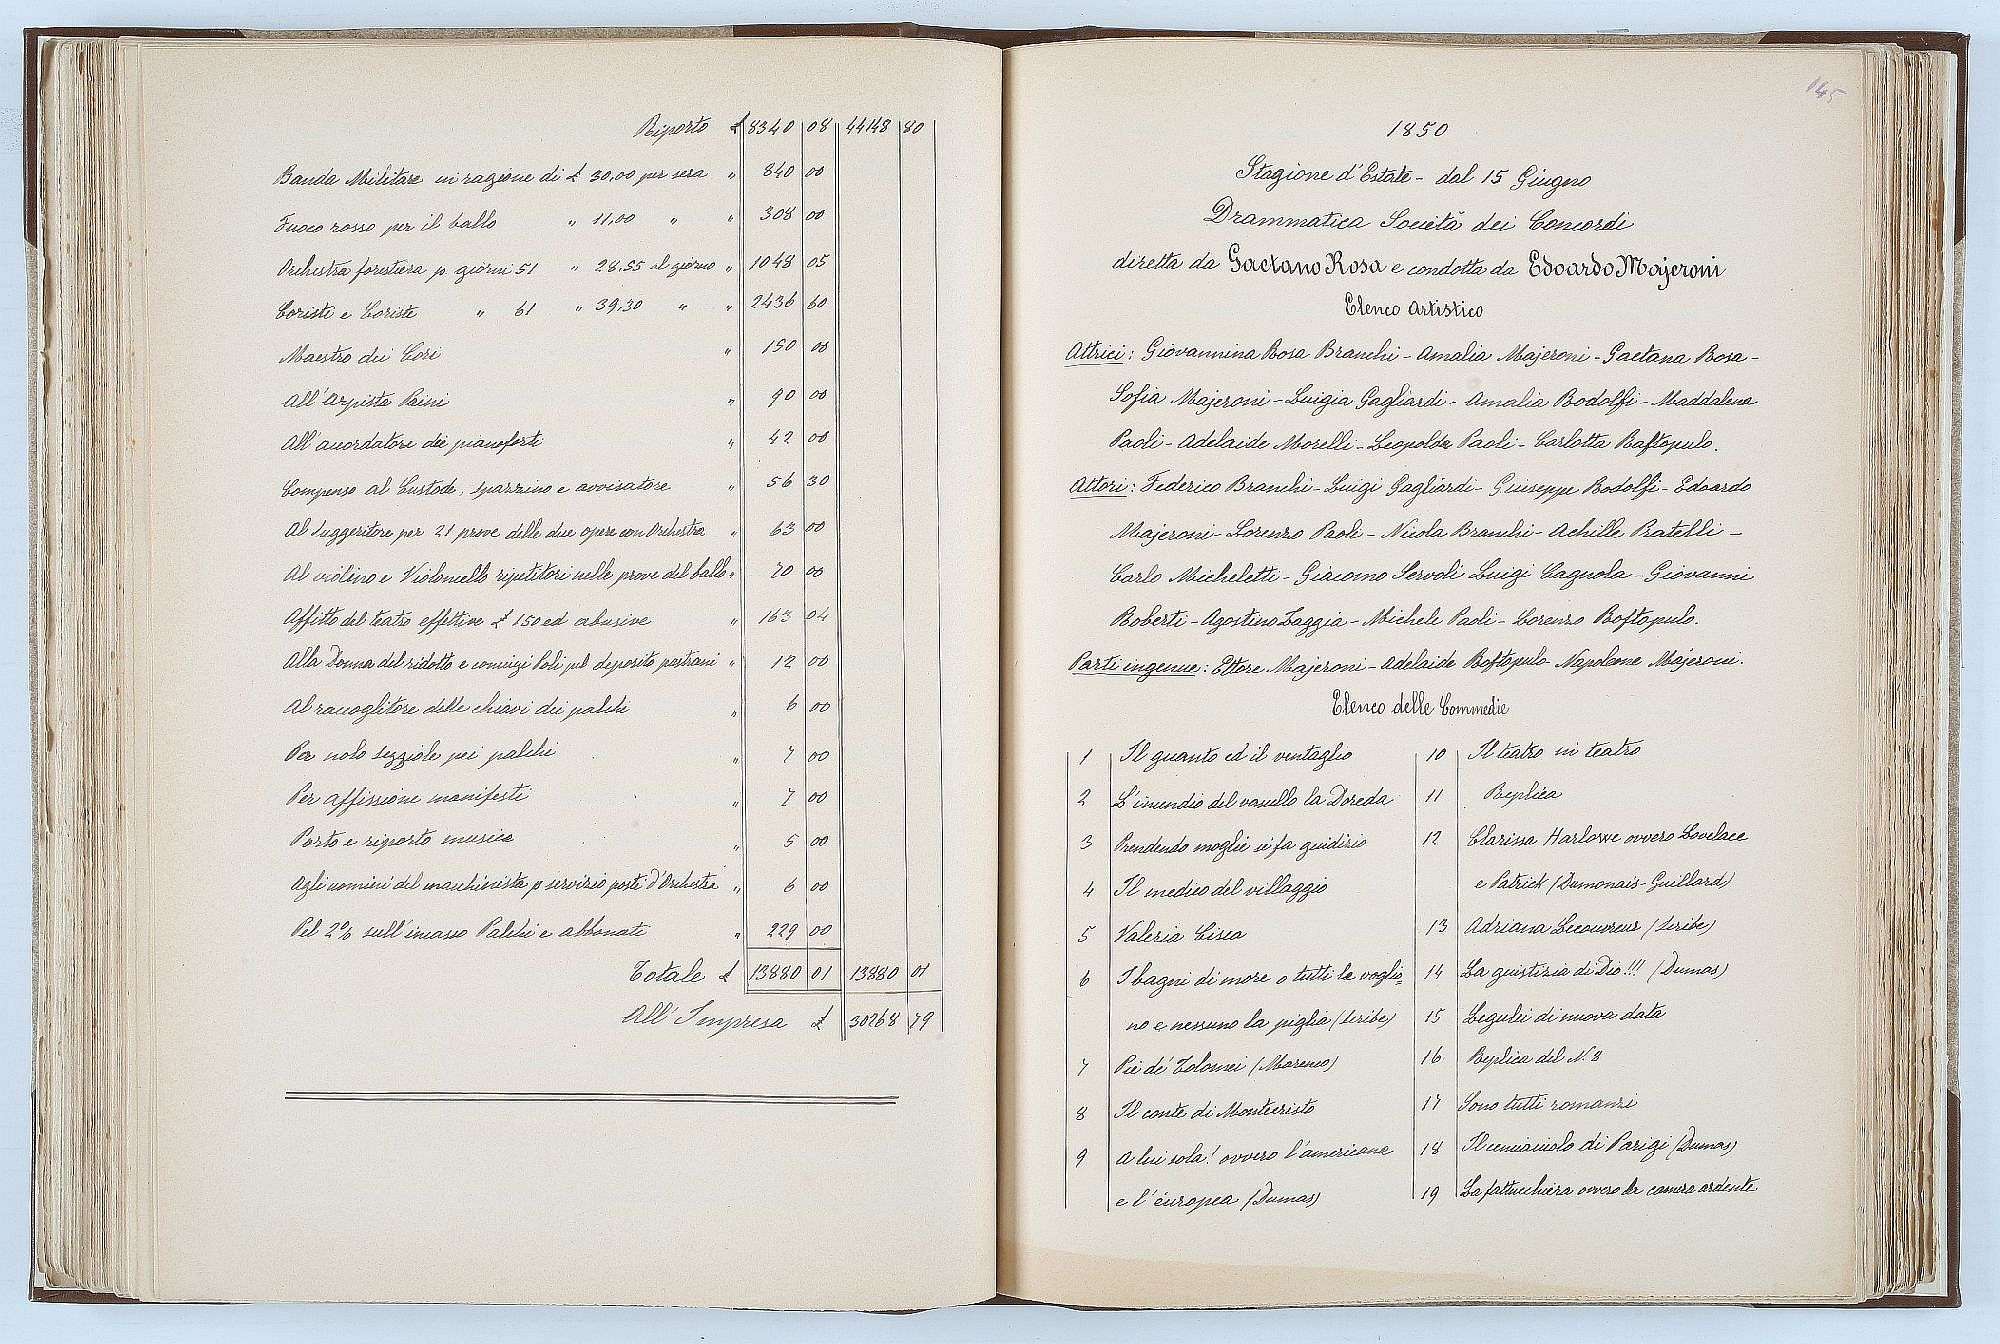 Riporto £ 8340 08 44148 80
Banda Militare in ragione di £ 30,00 per sera " 840 00
Fuoco rosso per il ballo " 11,00 " " 308 00
Orchestra forestiera p giorni 51 " 28.55 al giorno " 1048 05
Coristi e Coriste " 61 " 39,30 " " 2436 60
Maestro dei Cori " 150 00
All'Arpista Paini " 90 00
All'accordatore dei pianoforti " 42 00
Compenso al Custode, spazzino e avvisatore " 56 30
Al Suggeritore per 21 prove delle due opere con Orchestra " 63 00
Al violino e Violoncello ripetitori nelle prove del ballo " 70 00
Affitto del teatro effettive £ 150 ed abusive " 163 04
Alla Donna del ridotto e coniugi Poli pel deposito pastrani " 12 00
Al raccoglitore delle chiavi dei palchi " 6 00
Per nolo seggiole pei palchi " 7 00
Per affissione manifesti " 7 00
Porto e riporto musica " 5 00
Agli uomini del macchinista p servizio posti d'Orchestra " 6 00
Pel 2% sull'incasso Palchi e abbonati " 229 00
Totale £ 13880 01 13880 01
All'Impresa £ 30268 79
145
1850
Stagione d'Estate - dal 15 Giugno
Drammatica Società dei Concordi
diretta da Gaetano Rosa e condotta da Edoardo Majeroni
Elenco Artistico
Attrici: Giovannina Rosa Branchi - Amalia Majeroni - Gaetana Rosa -
Sofia Majeroni - Luigia Gagliardi - Amalia Rodolfi - Maddalena
Paoli - Adelaide Morelli - Leopolda Paoli - Carlotta Raftopulo.
Attori: Federico Branchi - Luigi Gagliardi - Giuseppe Rodolfi - Edoardo
Majeroni - Lorenzo Paoli - Nicola Branchi - Achille Pratelli -
Carlo Micheletti - Giacomo Servoli - Luigi Cagnola - Giovanni
Roberti - Agostino Zaggia - Michele Paoli - Lorenzo Roftopulo.
Parti ingenue: Ettore Majeroni - Adelaide Roftopulo - Napoleone Majeroni.
Elenco delle Commedie
1 Il guanto ed il ventaglio
2 L'incendio del vascello la Doreda
3 Prendendo moglie si fa giudizio
4 Il medico del villaggio
5 Valeria Cieca
6 I bagni di mare o tutti la voglio=
no e nessuno la piglia (Scribe)
7 Pia dé Tolomei (Marenco)
8 Il conte di Montecristo
9 A lui sola! ovvero l'americana
e l'europea (Dumas)
10 Il teatro in teatro
11 Replica
12 Clarissa Harlowe ovvero Lovelace
e Patrick (Dumonais - Guillard)
13 Adriana Lecouvreur (Scribe)
14 La giustizia di Dio!!! (Dumas)
15 Legulei di nuova data
16 Replica del N. 3
17 Sono tutti romanzi
18 Il cenciaiolo di Parigi (Dumas)
19 La fattucchiera ovvero la camera ardente